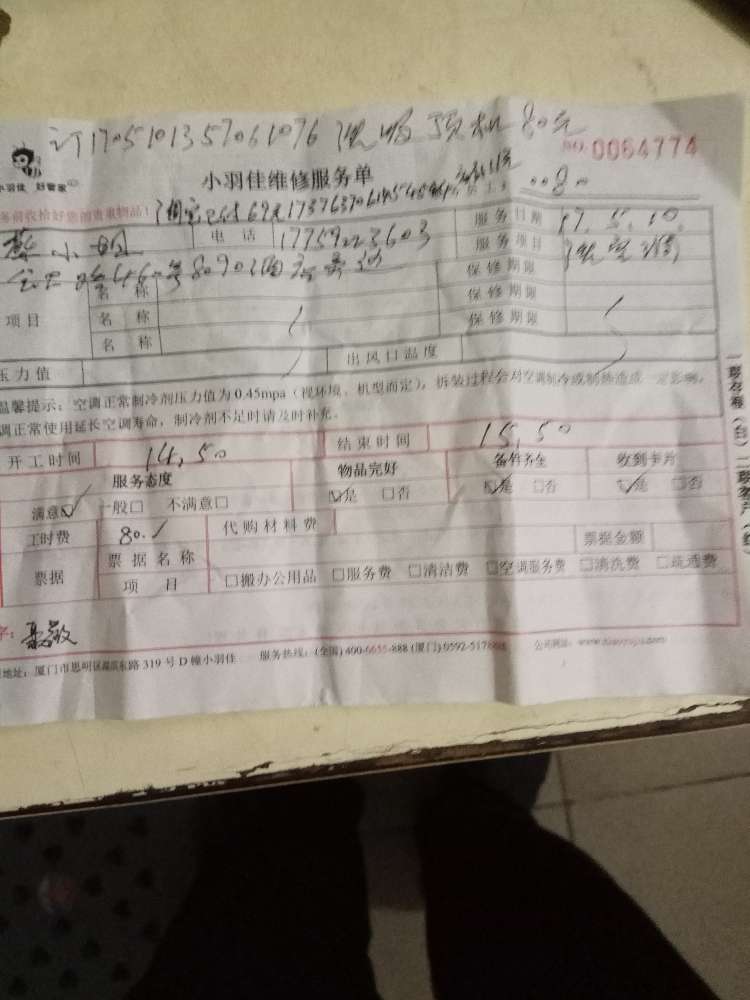 订1705101357061076 洗吸顶机80元
NO:0064774
小羽佳 好管家
小羽佳维修服务单
淘宝已付69元
0080
小姐 电话 17759223603 服务日期 17.5.10.
服务项目 洗空调
名称 保修期限
项目 名称 保修期限
名称 保修期限
压力值 出风口温度
温馨提示:空调正常制冷剂压力值为0.45mpa(视环境、机型而定),拆装过程会对空调制冷或制热造成一定影响,
调正常使用延长空调寿命,制冷剂不足时请及时补充。
开工时间 14,50 结束时间 15,50
服务态度 物品完好 备件齐全 收到卡片
满意☑ 一般□ 不满意□ ☑是 □否 ☑是 □否 ☑是 □否
工时费 80. 代购材料费
票据 票据名称 票据金额
项目 □搬办公用品 □服务费 □清洁费 □空调服务费 □清洗费 □疏通费
地址:厦门市思明区 东路319号D幢小羽佳 服务热线:(全国)400-6655-888 (厦门)0592-517
公司网站: